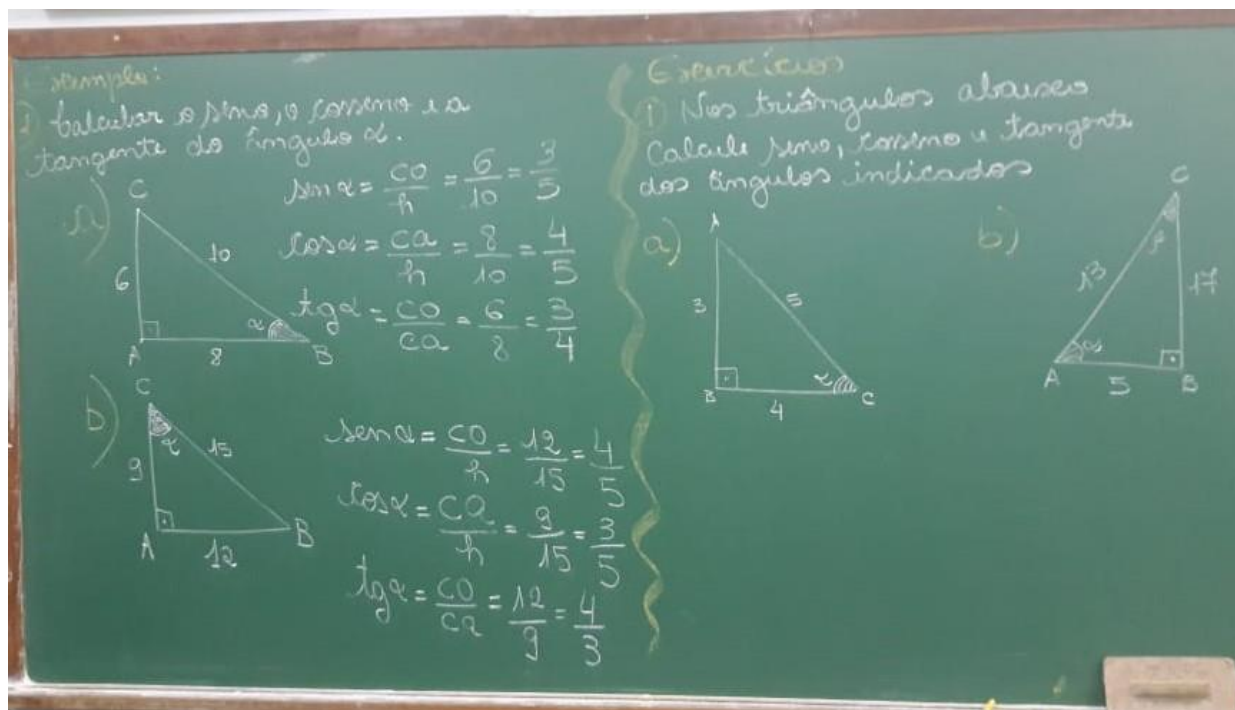 Exemplo:
1) Calcular o seno, o cosseno e a
tangente do ângulo α.
a)
C
6
10
A
8
α
B
sen α = co/h = 6/10 = 3/5
cos α = ca/h = 8/10 = 4/5
tg α = co/ca = 6/8 = 3/4
b)
C
α
9
15
A
12
B
sen α = co/h = 12/15 = 4/5
cos α = ca/h = 9/15 = 3/5
tg α = co/ca = 12/9 = 4/3
Exercícios
1) Nos triângulos abaixo
Calcule seno, cosseno e tangente
dos ângulos indicados
a)
A
3
5
B
4
α
C
b)
C
β
13
17
A
α
5
B